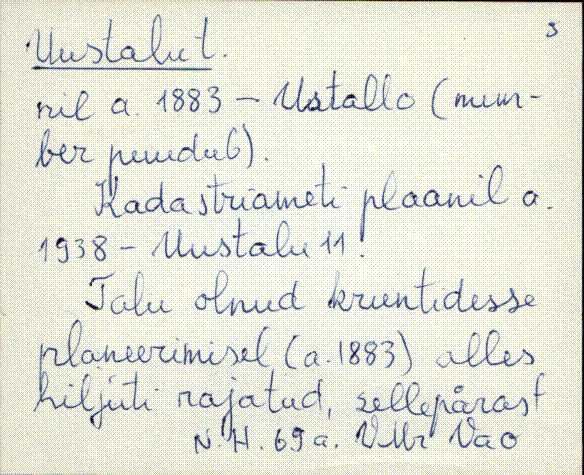 3
Uustalu t.
nil a. 1883 – Ustallo (num-
ber puudub).
Kadastriameti plaanil a.
1938 – Uustalu 11.
Talu olnud kruntidesse
planeerimisel (a. 1883) alles
hiljuti rajatud, sellepärast
N. H. 69 a. VMr Vao